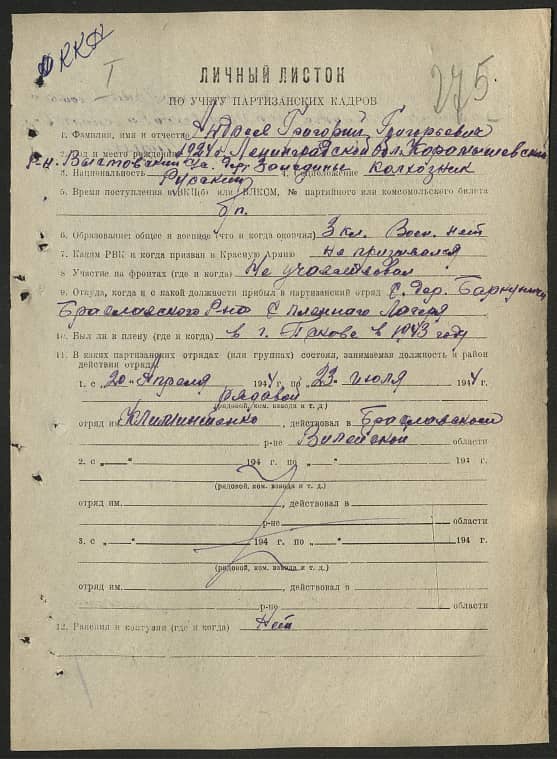 РККА
I
275
ЛИЧНЫЙ ЛИСТОК
ПО УЧЕТУ ПАРТИЗАНСКИХ КАДРОВ
1. Фамилия, имя и отчество Григорий Григорьевич
2. Год и место рождения 1924 г. Ленинградской обл. Карамышевский
р-н. с/с. дер.
3. Национальность Русский 4. Соцположение Колхозник
5. Время поступления в ВКП(б) или ВЛКСМ, № партийного или комсомольского билета
б/п.
6. Образование: общее и военное (что и когда окончил) 3 кл. Воен. нет
7. Каким РВК и когда призван в Красную Армию не призывался
8 Участие на фронтах (где и когда) Не участвовал
9. Откуда, когда и с какой должности прибыл в партизанский отряд с дер.
Браславского р-на с пленного лагеря
10. Был ли в плену (где и когда) в г. Пскове в 1943 году
11. В каких партизанских отрядах (или группах) состоял, занимаемая должность и район
действия отряда:
1. с „20“ Апреля 1944 г. по „23“ июля 1944 г.
рядовой
(рядовой, ком. взвода и т. д.)
отряд им. , действовал в Браславском
р-не Вилейской области
2. с „ “ 194 г. по „ “ 194 г.
(рядовой, ком. взвода и т. д.)
отряд им. , действовал в
р-не области
3. с „ “ 194 г. по „ “ 194 г.
(рядовой, ком. взвода и т. д.)
отряд им. , действовал в
р-не области
12. Ранения и контузии (где и когда) Нет